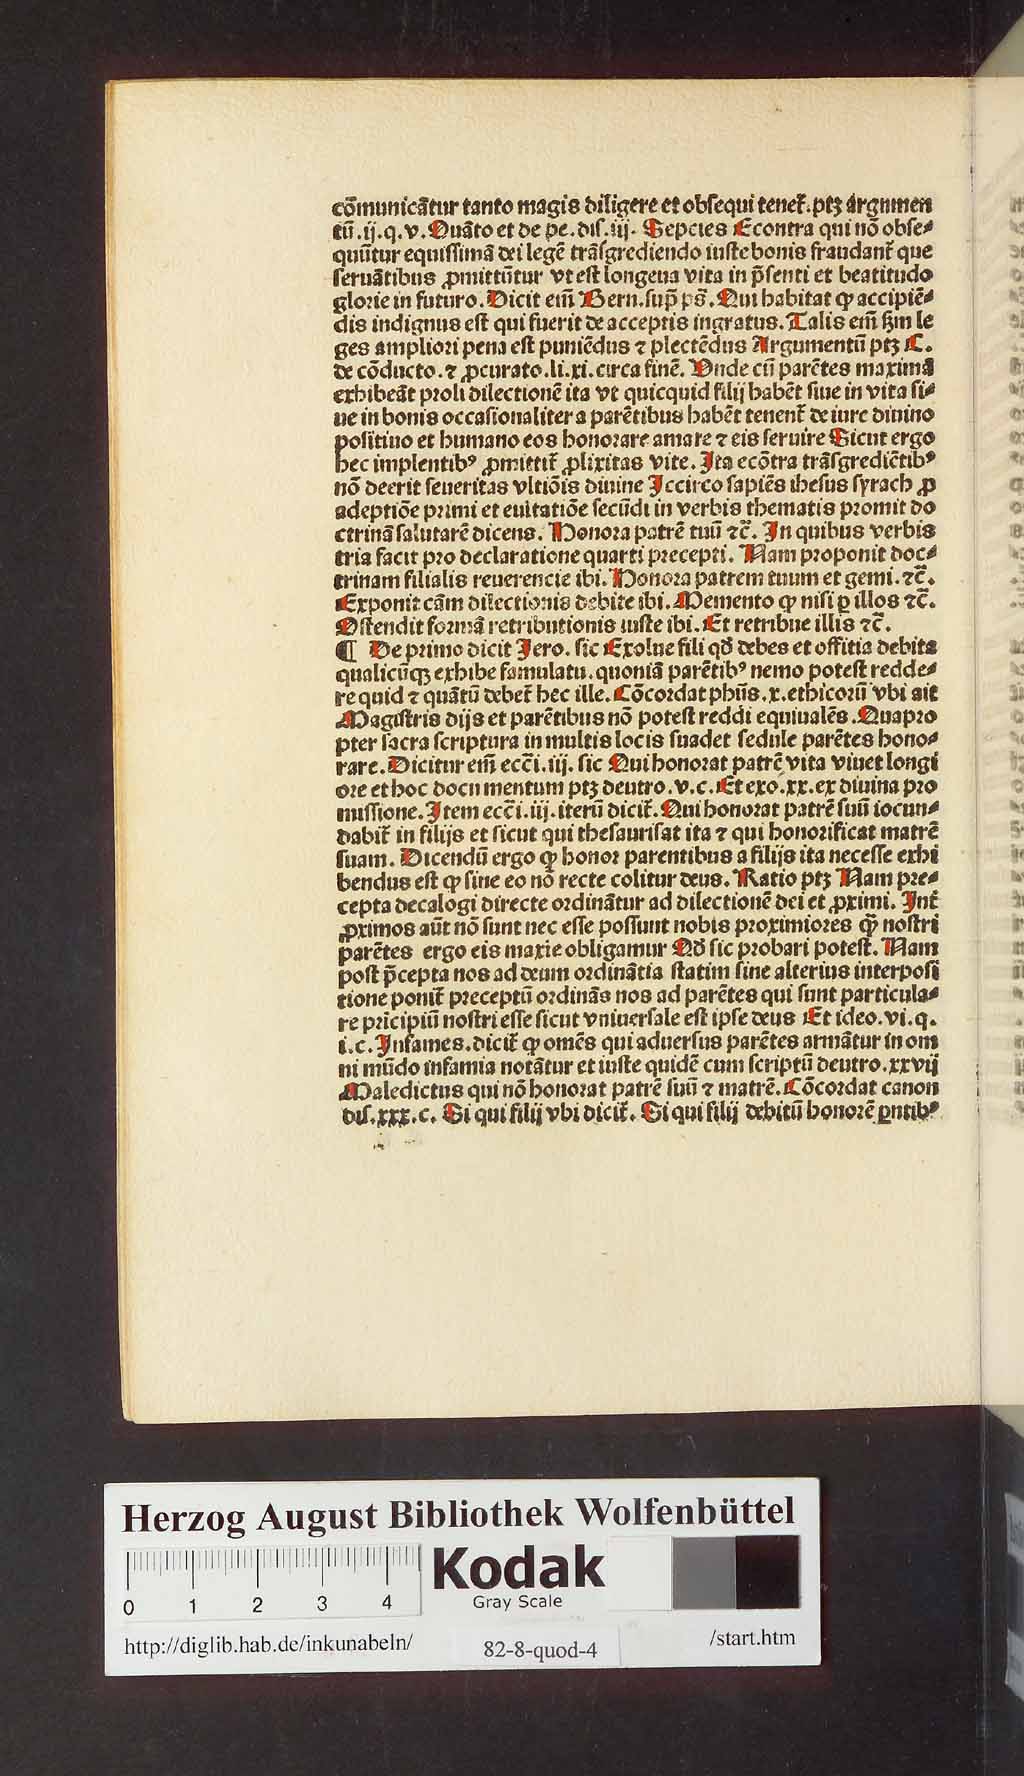 cōmunicātur tanto magis diligere et obsequi tenet̄. ptꝫ argumen
tū .ij.q.v. Quāto et de pe. dis. iij. Sepcies Econtra qui nō obse⸗
quūtur equissimā dei legē trāsgrediendo iuste bonis fraudant̄ que
seruātibus ꝓmittūtur vt est longeua vita in p̄senti et beatitudo
glorie in futuro. Dicit eim̄ Bern. sup̄ ps̄. Qui habitat ꝙ accipiē⸗
dis indignus est qui fuerit de acceptis ingratus. Talis eim̄ ẜm le
ges ampliori pena est puniēdus ⁊ plectēdus Argumentū ptꝫ C.
de cōducto. ⁊ ꝓcurato. li. xi. circa finē. Unde cū parētes maximā
exhibeāt proli dilectionē ita vt quicquid filij habēt siue in vita si⸗
ue in bonis occasionaliter a parētibus habēt tenent̄ de iure diuino
positiuo et humano eos honorare amare ⁊ eis seruire Sicut ergo
hec implentibꝰ ꝓmittit̄ ꝓlixitas vite. Ita ecōtra trāsgrediētibꝰ
nō deerit seueritas vltiōis diuine Iccirco sapiēs ihesus syrach ꝓ
adeptiōe primi et euitatiōe secūdi in verbis thematis promit do
ctrinā salutarē dicens. Honora patrē tuū ⁊c̄. In quibus verbis
tria facit pro declaratione quarti precepti. Nam proponit doc⸗
trinam filialis reuerencie ibi. Honora patrem tuum et gemi. ⁊c̄.
Exponit cām dilectionis debite ibi. Memento ꝙ nisi ꝑ illos ⁊c̄.
Ostendit formā retributionis iuste ibi. Et retribue illis ⁊c̄.
¶ De primo dicit Iero. sic Exolue fili qd̄ debes et offitia debita
qualicūqꝫ exhibe famulatu. quoniā parētibꝰ nemo potest redde⸗
re quid ⁊ quātū debet̄ hec ille. Cōcordat phūs. x. ethicorū vbi ait
Magistris dijs et parētibus nō potest reddi equiualēs. Quapro
pter sacra scriptura in multis locis suadet sedule parētes hono⸗
rare. Dicitur eim̄ ecc̄i. iij. sic Qui honorat patrē vita viuet longi
ore et hoc documentum ptꝫ deutro. v. c. Et exo. xx. ex diuina pro
missione. Item ecc̄i. iij. iterū dicit̄. Qui honorat patrē suū iocun⸗
dabit̄ in filijs et sicut qui thesaurisat ita ⁊ qui honorificat matrē
suam. Dicendū ergo ꝙ honor parentibus a filijs ita necesse exhi
bendus est ꝙ sine eo nō recte colitur deus. Ratio ptꝫ Nam pre⸗
cepta decalogi directe ordinātur ad dilectionē dei et ꝓximi. Int̄
ꝓximos aūt nō sunt nec esse possunt nobis proximiores q̄ꝫ nostri
parētes ergo eis maxie obligamur Qd̄ sic probari potest. Nam
post p̄cepta nos ad deum ordinātia statim sine alterius interposi
tione ponit̄ preceptū ordinās nos ad parētes qui sunt particula⸗
re pricipiū nostri esse sicut vniuersale est ipse deus Et ideo. vi. q.
i. c. Infames. dicit̄ ꝙ omēs qui aduersus parētes armātur in om
ni mūdo infamia notātur et iuste quidē cum scriptū deutro. xxvij
Maledictus qui nō honorat patrē suū ⁊ matrē. Cōcordat canon
dis. xxx. c. Si qui filij vbi dicit̄. Si qui filij debitū honorē ꝑntibꝰ
Herzog August Bibliothek Wolfenbüttel
0 1 2 3 4
Kodak
Gray Scale
http://diglib.hab.de/inkunabeln/
82-8-quod-4
/start.htm